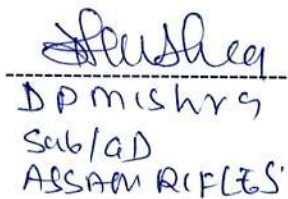 DPMIShra
Sub/GD
ASSAM RIFLES